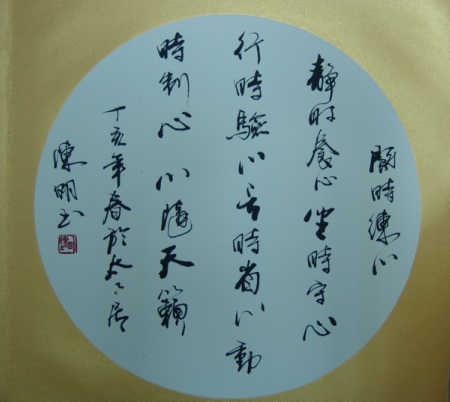 鬧時練心
靜時養心坐時守心
行時驗心言時省心動
時制心心隨天籟
丁亥年春於太居
陳明书